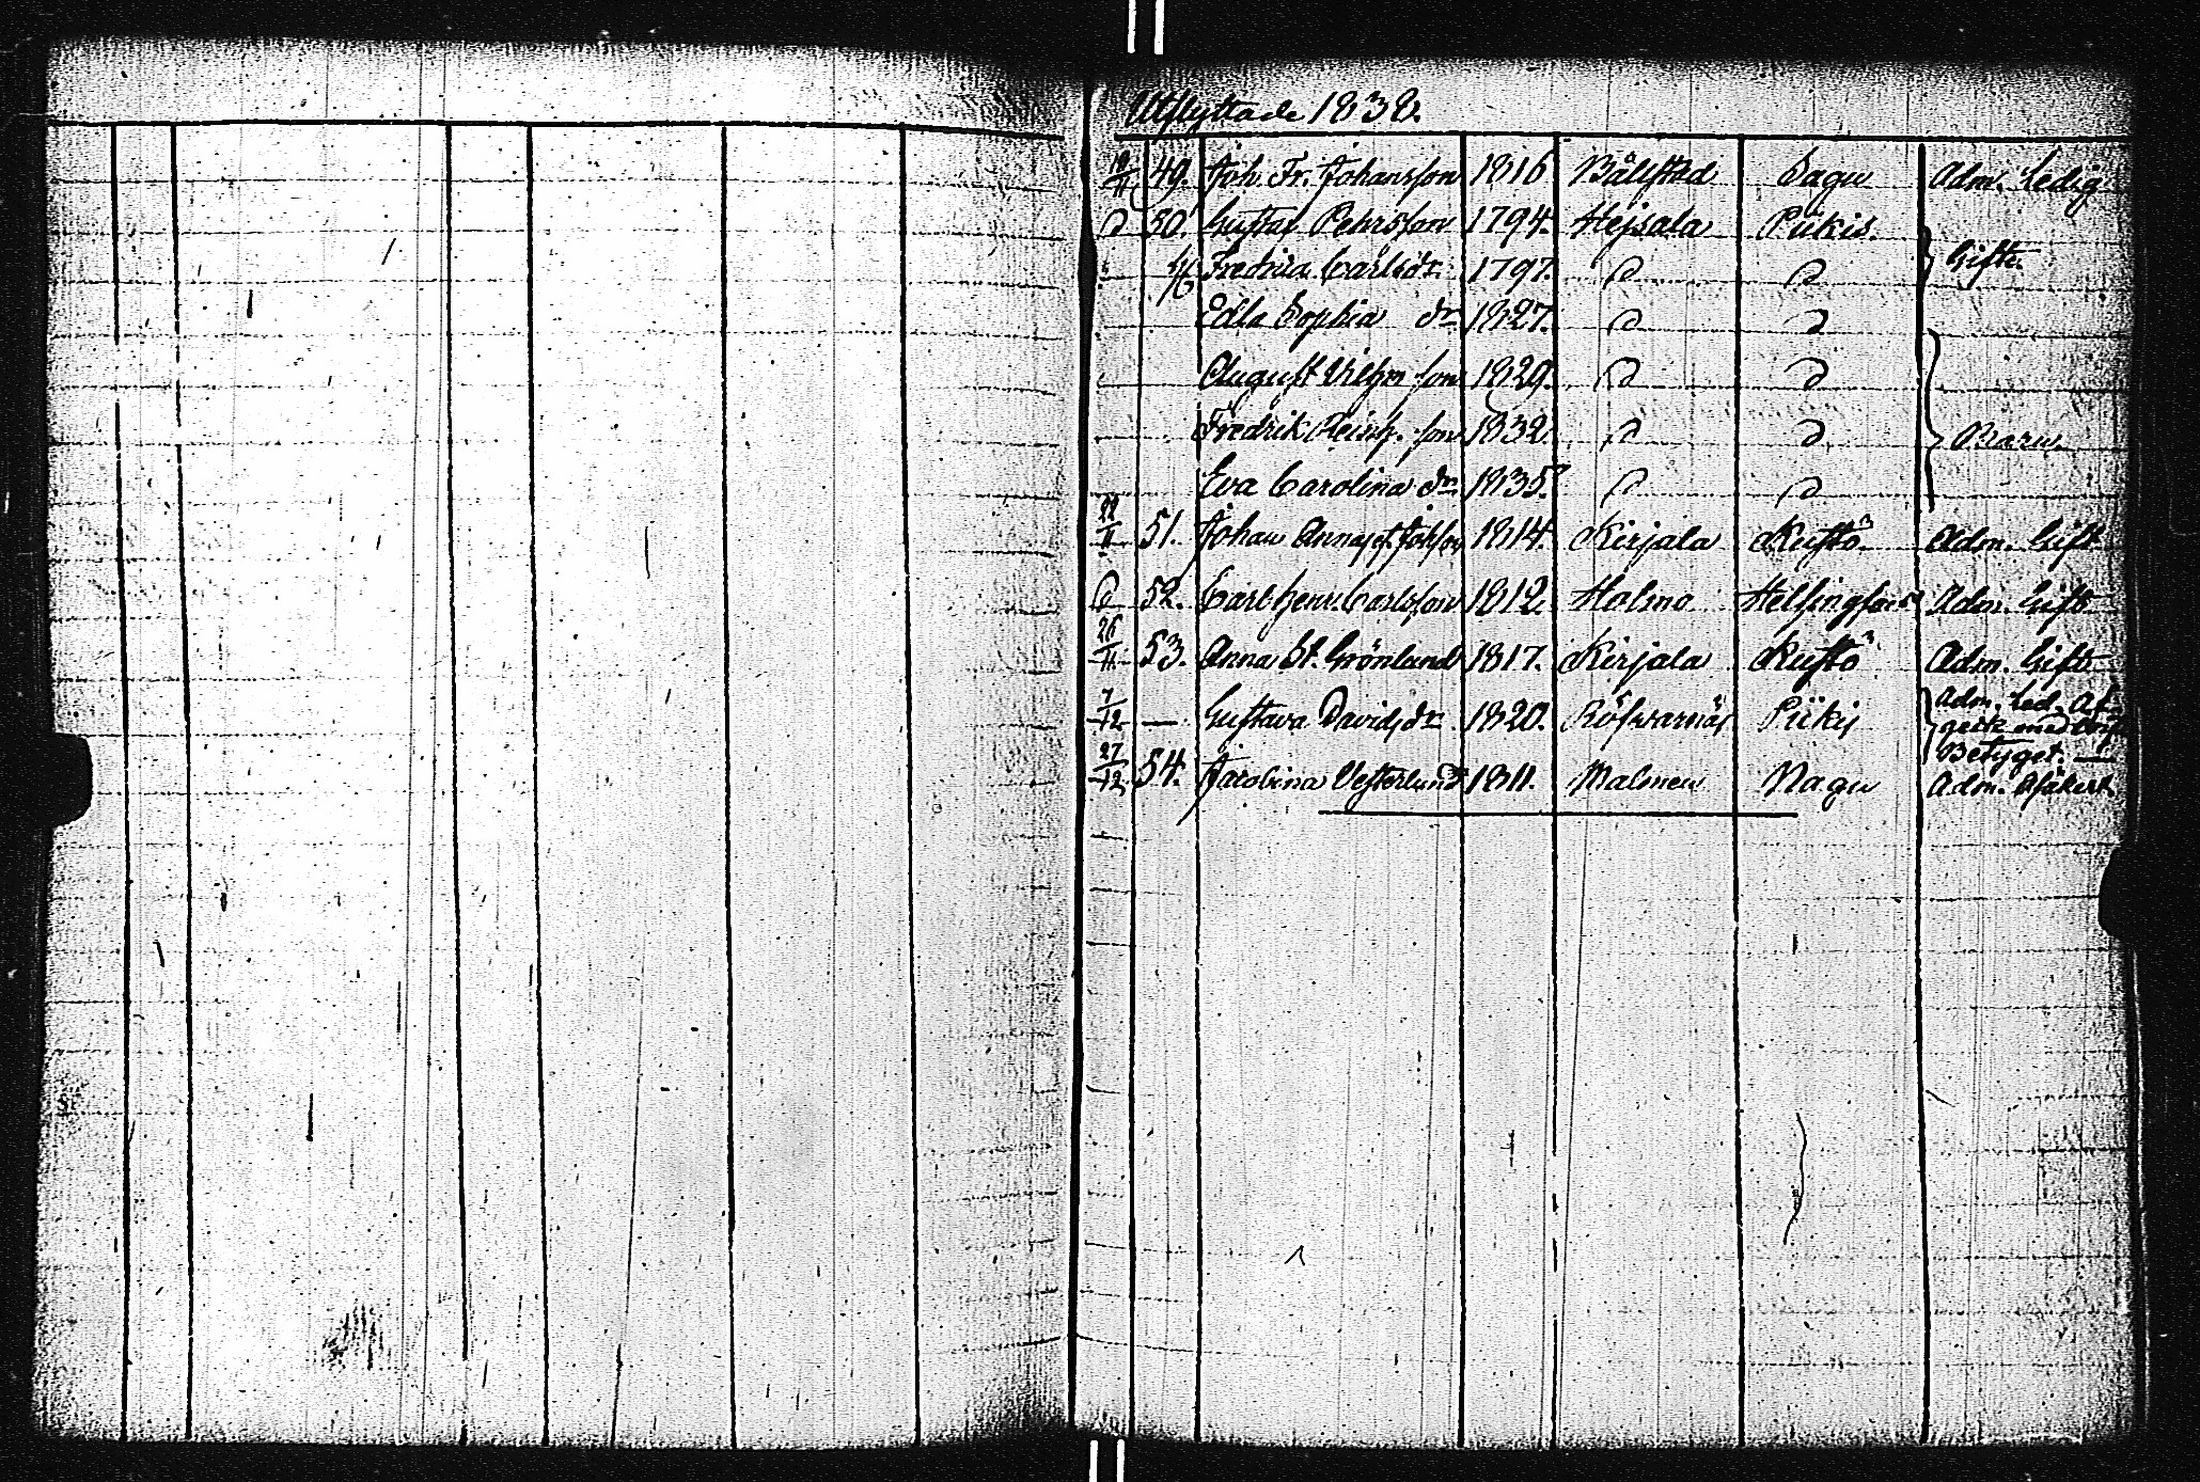 Utflyttade 1838.
19/11 49. Joh. Fr. Johansson 1816 Bålstad Sagu Adm. Ledig
D 50. Gustaf Pehrsson 1794. Hejsala Piikis.
H Fredrica Carlsdr 1797. D D Gifte.
Edla Sophia dr 1827. D D
August Vilhm son 1829. D D
Fredrik Reinh. son 1832. D D Barn.
Eva Carolina dr 1835. D D
22/11 51. Johan Johsson 1814. Kirjala Kustö Adm. Gift
D 52. Carl Henr. Carlsson 1812. Holmo Helsingfors Adm. Gift
26/11 53. Anna St. Grönlund 1817. Kirjala Kustö Adm. Gift
7/12 — Gustava Davidsdr 1820. Röfvarnäs Piikis Adm. Led. Af-
gick med
Betyget. —
27/12 54. Jacobina Vesterlund 1811. Malmen Nagu Adm.